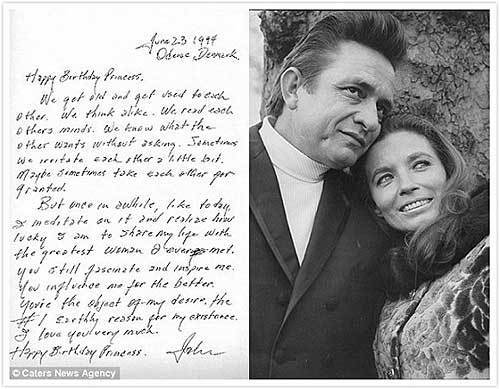 June 23 1994
Odense Denmark.
Happy Birthday Princess,
We get old and get used to each
other. We think alike. We read each
others minds. We know what the
other wants without asking. Sometimes
we irritate each other a little bit.
Maybe sometimes take each other for
granted.
But once in awhile, like today,
I meditate on it and realize how
lucky I am to share my life with
the greatest woman I ever met.
You still fascinate and inspire me.
You influence me for the better.
You're the object of my desire, the
#1 Earthly reason for my existence.
I love you very much.
Happy Birthday Princess.
John
© Caters News Agency